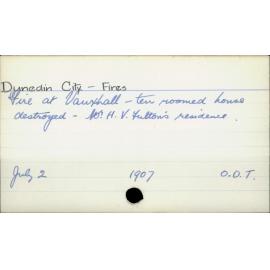 Dunedin City - Fires
Fire at Vauxhall - ten roomed house
destroyed - Mr. H. V. Fulton's residence.
July 2 1907 O.D.T.